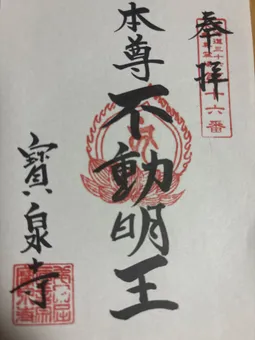 奉拝
十六番
本尊
不動明王
寳泉寺